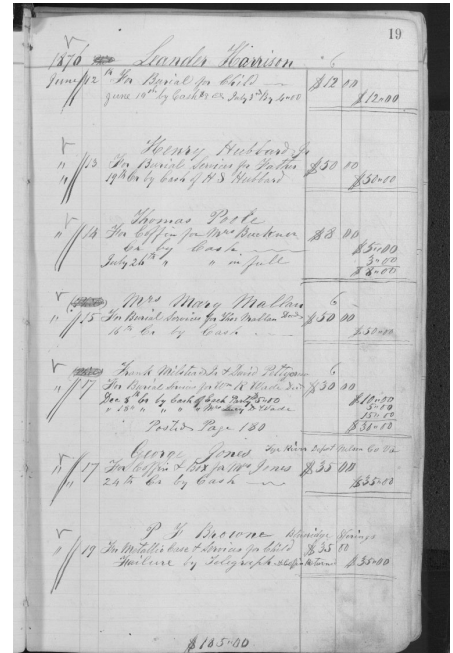 19
1876 Leander Harrison 6
June 12 th For Burial for Child $12 00
June 14th by Cash July 3rd By 4.00 $12.00
Henry Hubbard Jr
" 13 For Burial Services for Father $50 00
" 19th Cr by Cash of H S Hubbard $50.00
Thomas Poole
" 14 For Coffin for Mrs Buckner $8 00
Cr by Cash $5.00
July 26th " " in full 3.00
$8.00
Mrs Mary Mallan 6
" 15 For Burial Services for Thos Mallan $50 00
16th Cr by Cash $50.00
Frank & David Pettyjohn 6
" 17 For Burial Services for Wm R Wade $30 00
Dec 8th Cr by Cash of Each Party 5.00 $10.00
5.00
" 18th " " " " Mrs Lucy D Wade 15.00
Posted Page 180 $30.00
George Jones Tye River Depot Nelson Co Va
" 17 For Coffin & Box for Mrs Jones $35 00
24th Cr by Cash $35.00
P F Browne Springs
" 19 For Metallic Case & Services for Child $35 00
Failure by Telegraph & Coffin Returned $35.00
$185.00